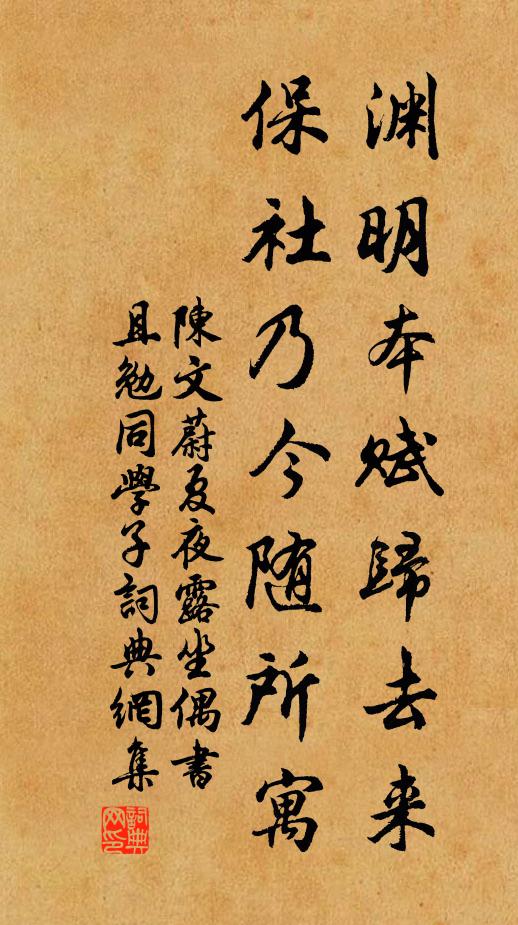 渊明本赋歸去来
保社乃今随所寓
陳文蔚夏夜露坐偶書
且勉同學子詞典網集
詞典网印